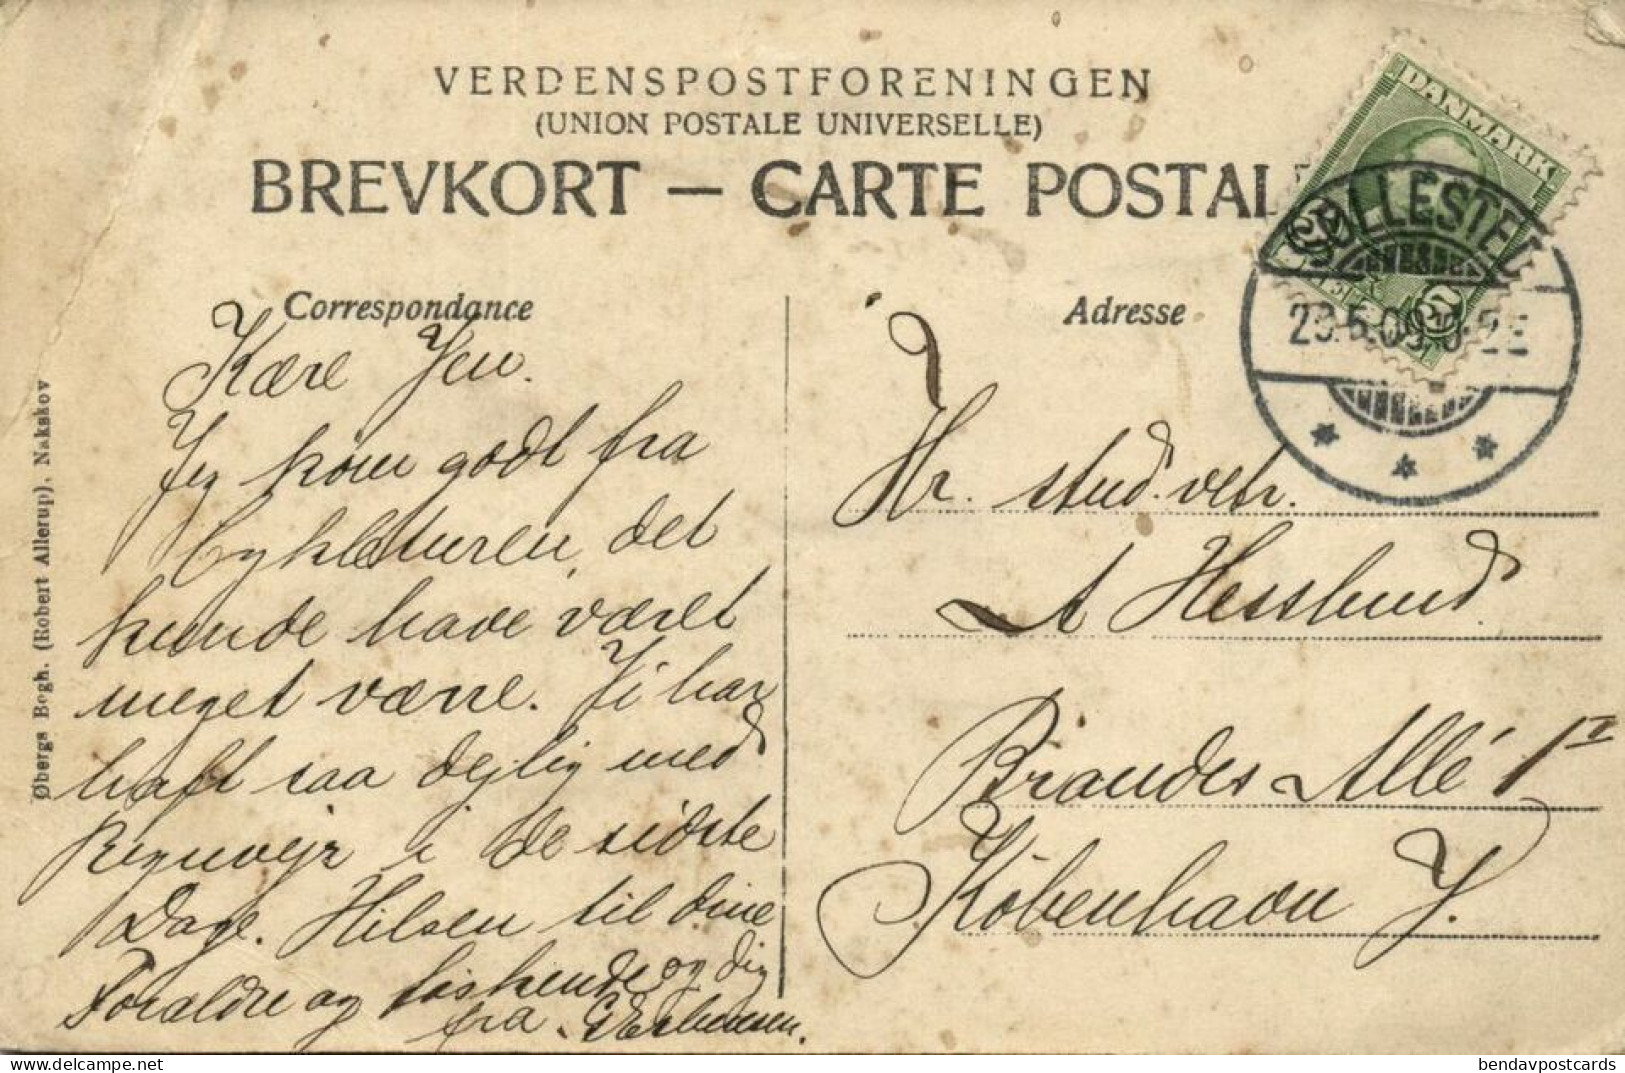 VERDENSPOSTFORENINGEN
(UNION POSTALE UNIVERSELLE)
BREVKORT — CARTE POSTAL
DANMARK
5 5
SØLLESTED
Correspondance
Kære Ven.
Jeg kom godt fra
Cykleturen, det
kunde have været
meget værre. Vi har
haft saa dejlig med
Regnvejr i de sidste
Dage. Hilsen til dine
Forældre og søskende og dig
fra
Adresse
Hr. stud. vetr.
A Hesslund
Brandes Allé 1
København V.
Øbergs Bogh. (Robert Allerup), Nakskov
bendavpostcards